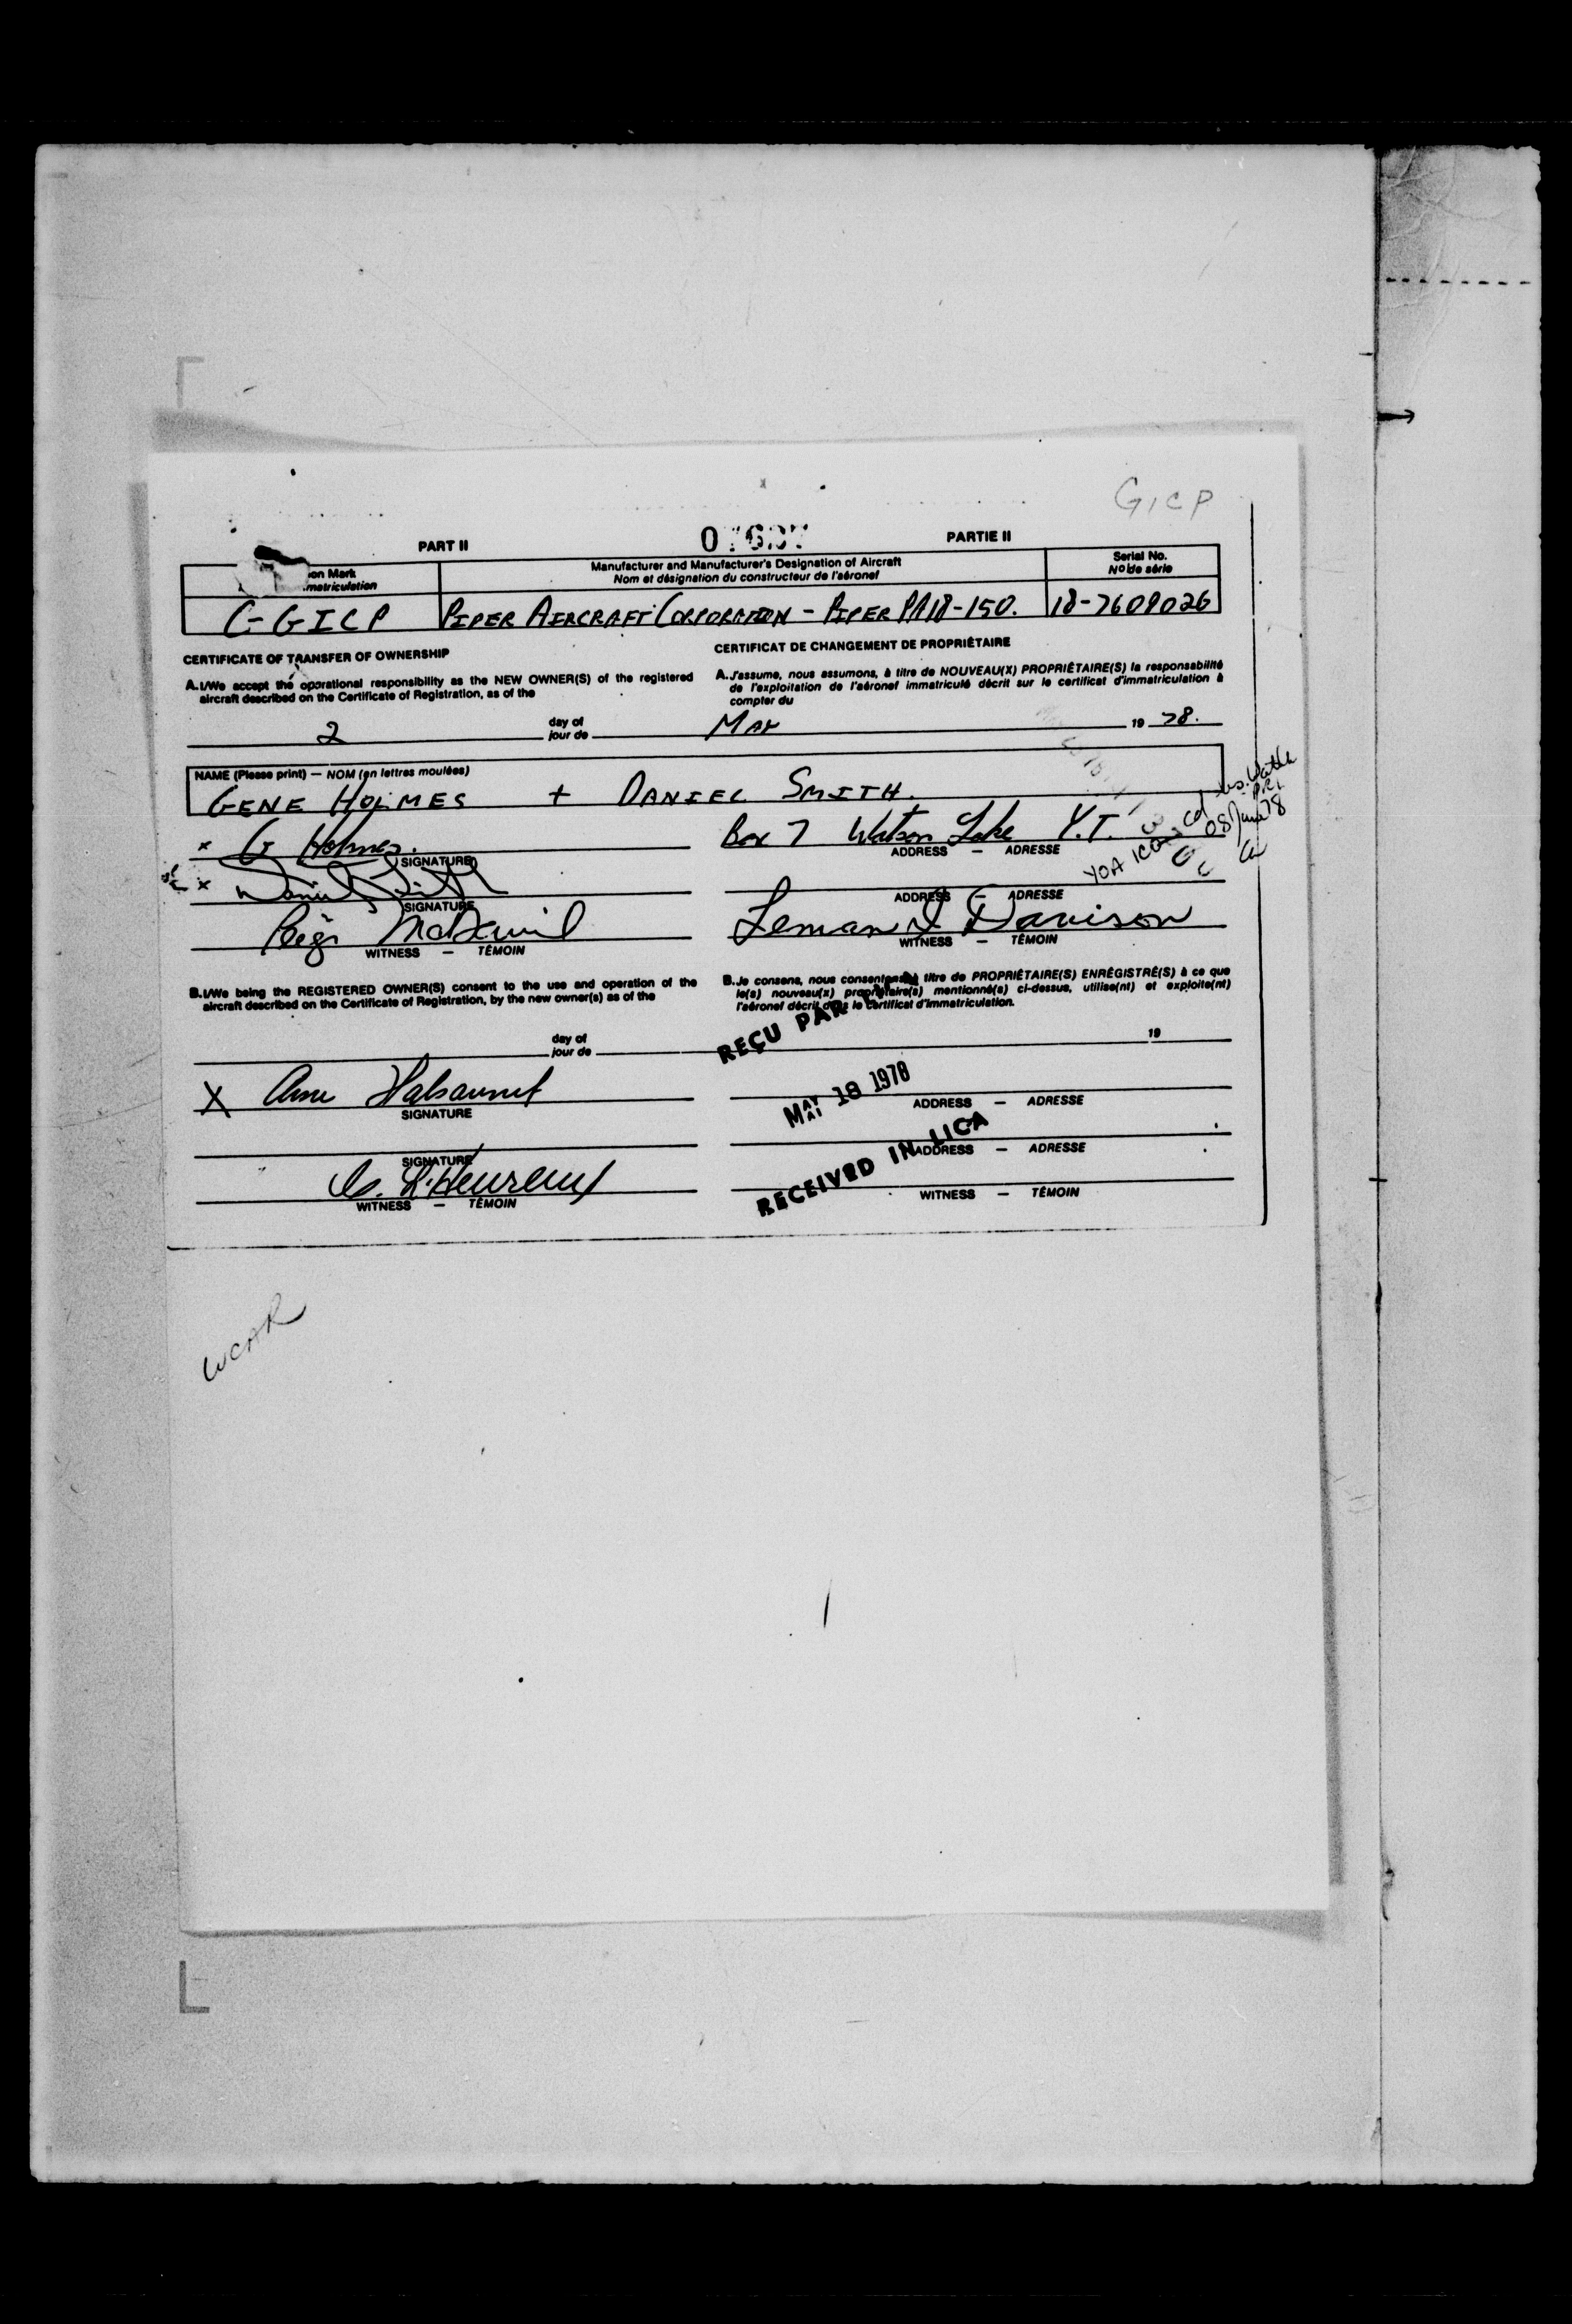 GICP
PART II
PARTIE II
on Mark
matriculation
Manufacturer and Manufacturer's Designation of Aircraft
Nom et désignation du constructeur de l'aéronef
Serial No.
No de série
C-GICP
PIPER AIRCRAFT CORPORATION - PIPER PA18-150.
18-7609026
CERTIFICATE OF TRANSFER OF OWNERSHIP
CERTIFICAT DE CHANGEMENT DE PROPRIÉTAIRE
A. I/We accept the operational responsibility as the NEW OWNER(S) of the registered
aircraft described on the Certificate of Registration, as of the
A. J'assume, nous assumons, à titre de NOUVEAU(X) PROPRIÉTAIRE(S) la responsabilité
de l'exploitation de l'aéronef immatriculé décrit sur le certificat d'immatriculation à
compter du
2
day of
jour de
MAY
19 78.
NAME (Please print) — NOM (en lettres moulées)
GENE HOLMES + DANIEL SMITH.
x G Holmes.
SIGNATURE
Box 7 Watson Lake Y.T.
ADDRESS — ADRESSE
08 June 78
x Daniel Smith
SIGNATURE
ADDRESS — ADRESSE
WITNESS — TÉMOIN
Davison
WITNESS — TÉMOIN
B. I/We being the REGISTERED OWNER(S) consent to the use and operation of the
aircraft described on the Certificate of Registration, by the new owner(s) as of the
B. Je consens, nous consentons à titre de PROPRIÉTAIRE(S) ENRÉGISTRÉ(S) à ce que
le(s) nouveau(x) propriétaire(s) mentionné(s) ci-dessus, utilise(nt) et exploite(nt)
l'aéronef décrit dans le certificat d'immatriculation.
REÇU PAR
day of
jour de
19
X
SIGNATURE
MAY
MAI 18 1978
ADDRESS — ADRESSE
RECEIVED IN LICA
SIGNATURE
ADDRESS — ADRESSE
L'Heureux
WITNESS — TÉMOIN
WITNESS — TÉMOIN
WCAR